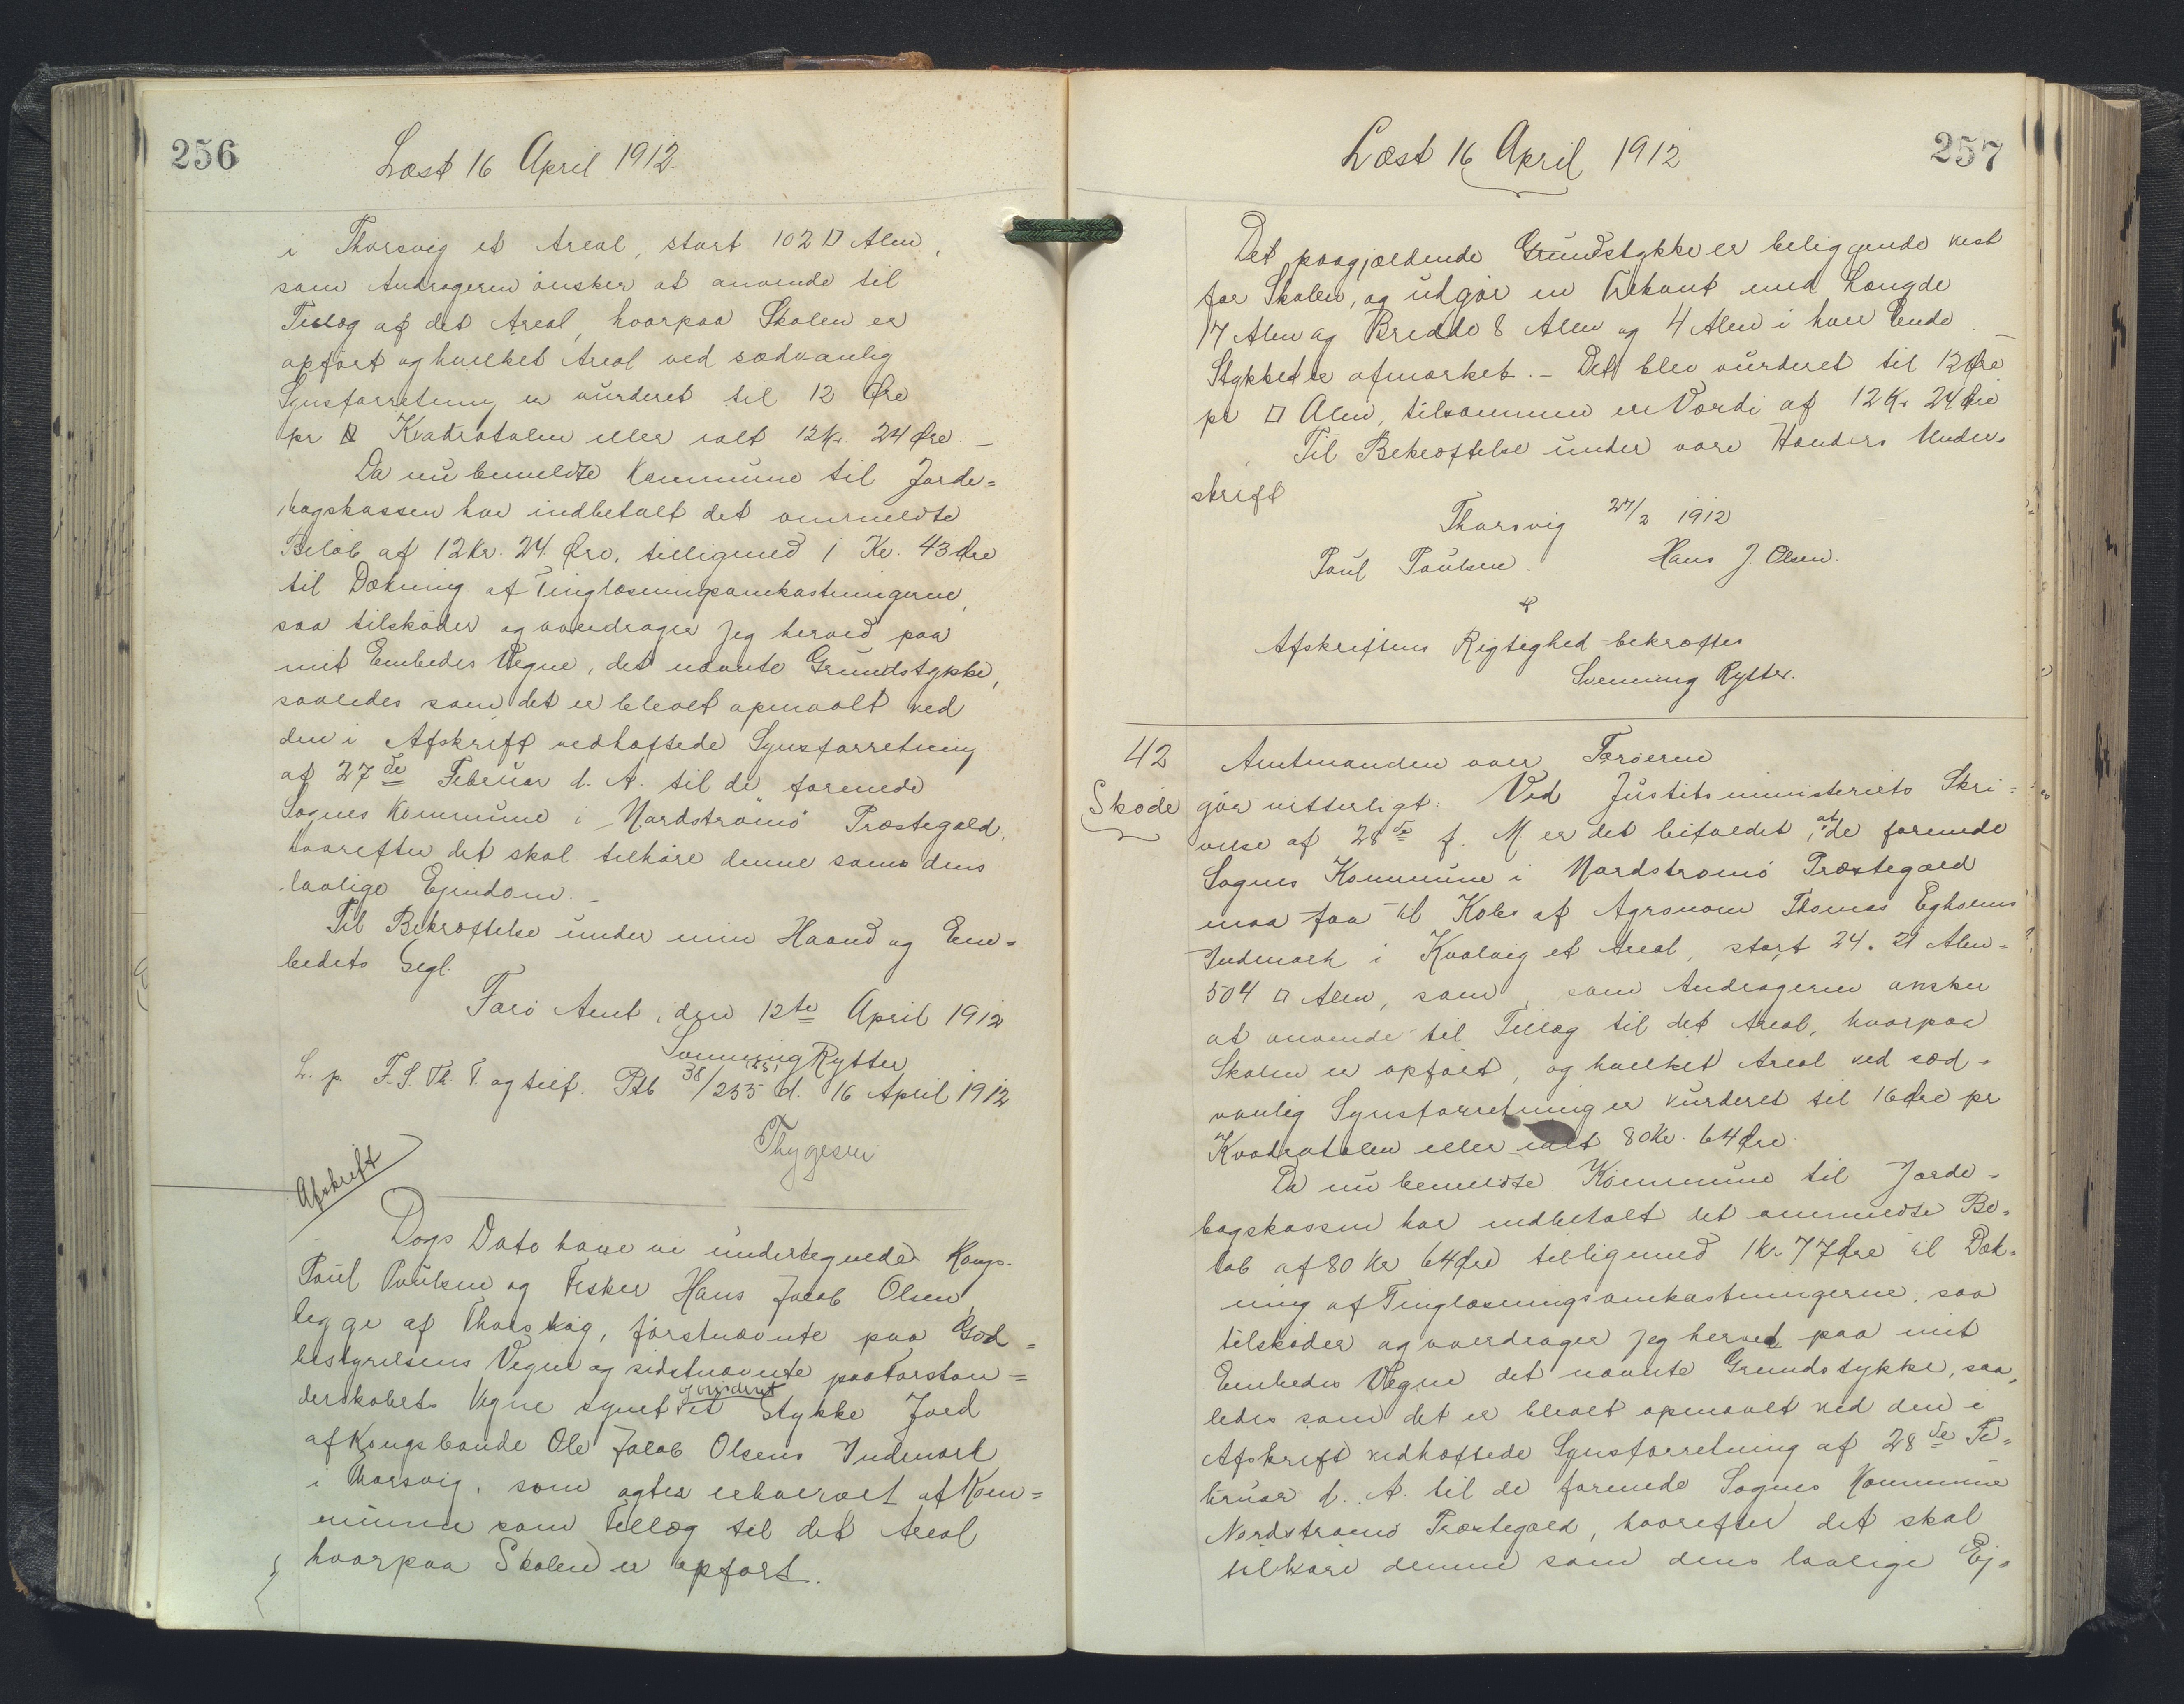 256
Læst 16 April 1912.
i Thorsvig et Areal, stort 102 □ Alen,
som Andrageren ønsker at anvende til
Tillæg af det Areal, hvorpaa Skolen er
opført og hvilket Areal ved sædvanlig
Synsforretning er vurderet til 12 Øre
pr □ Kvadratalen eller ialt 12 Kr. 24 Øre. —
Da nu bemeldte Kommune til Jorde=
bogskassen har indbetalt det ommeldte
Beløb af 12 Kr. 24 Øre, tilligemed 1 Kr. 43 Øre
til Dækning af Tinglæsningsomkostningerne,
saa tilskøder og overdrager jeg herved paa
mit Embedes Vegne, det nævnte Grundstykke,
saaledes som det er blevet opmaalt ved
den i Afskrift vedhæftede Synsforretning
af 27de Februar d. A. til de forenede
Sognes Kommune i Nordstrømø Præstegæld,
hvorefter det skal tilhøre denne som dens
lovlige Ejendom. —
Til Bekræftelse under min Haand og Em=
bedets Segl.
Færø Amt, den 12te April 1912
Svenning Rytter
L. p. F. S. Th. T. og tilf. Ptb 38/255 d. 16 April 1912
Thygesen
Afskrift
Dags Dato have vi undertegnede Kongs.
Poul Poulsen og Fisker Hans Jacob Olsen,
begge af Thorsvig, førstnævnte paa God=
bestyrelsens Vegne og sidstnævnte paa Forstan=
derskabets Vegne synet og vurderet et Stykke Jord
af Kongsbonde Ole Jacob Olsens Indmark
i Thorsvig, som agtes erhvervet af Kom=
munen som Tillæg til det Areal
hvorpaa Skolen er opført.
257
Læst 16 April 1912
Det paagjældende Grundstykke er beliggende vest
for Skolen, og udgør en Firkant med Længde
17 Alen og Bredde 8 Alen og 4 Alen i hver Ende —
Stykket er afmærket. — Det blev vurderet til 12 Øre
pr □ Alen, tilsammen en Værdi af 12 Kr 24 Øre
Til Bekræftelse under vore Hænders Under-
skrift
Thorsvig 27/2 1912
Poul Poulsen. Hans J. Olsen.
Afskriftens Rigtighed bekræftes
Svenning Rytter.
42 Amtmanden over Færøerne
Skøde gør vitterligt: Ved Justitsministeriets Skri=
velse af 28de f. M. er det bifaldet, at de forenede
Sognes Kommune i Nordstrømø Præstegæld
maa faa til Købs af Agronom Thomas Egholms
Indmark i Kvalvig et Areal, stort 24 . 21 Alen =
504 □ Alen, som, som Andrageren ønsker
at anvende til Tillæg til det Areal, hvorpaa
Skolen er opført, og hvilket Areal ved sæd=
vanlig Synsforretning er vurderet til 16 Øre pr
Kvadratalen eller ialt 80 Kr. 64 Øre.
Da nu bemeldte Kommune til Jorde=
bogskassen har indbetalt det ommeldte Be=
løb af 80 Kr 64 Øre tilligemed 1 Kr 77 Øre til Dæk=
ning af Tinglæsningsomkostningerne, saa
tilskøder og overdrager jeg herved paa mit
Embedes Vegne det nævnte Grundstykke, saa=
ledes som det er blevet opmaalt ved den i
Afskrift vedhæftede Synsforretning af 28de Fe=
bruar d. A. til de forenede Sognes Kommune
Nordstrømø Præstegæld, hvorefter det skal
tilhøre denne som dens lovlige Ej=